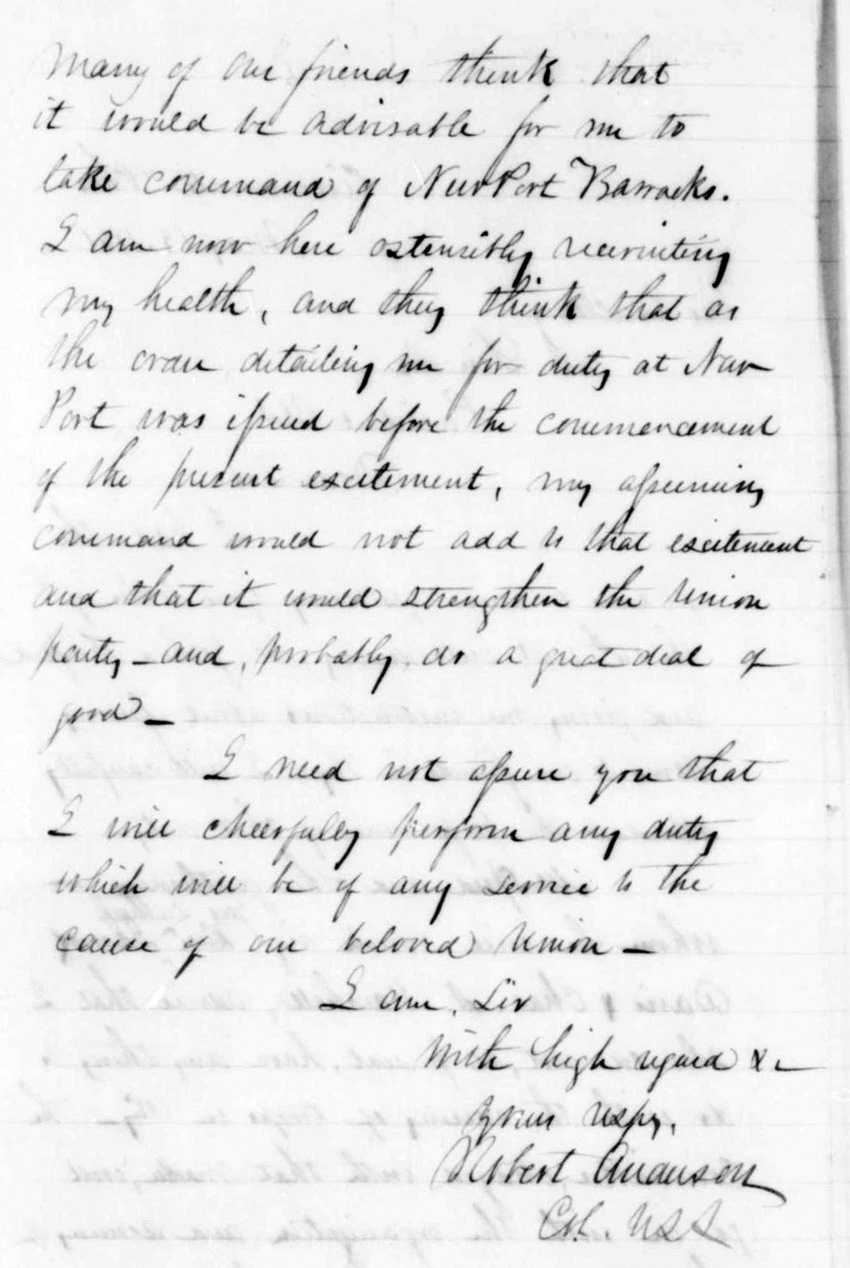 Many of our friends think that
it would be advisable for me to
take command of NewPort Barracks.
I am now here ostensibly recruiting
my health, and they think that as
the order detailing me for duty at New
Port was issued before the commencement
of the present excitement, my assuming
command would not add to that excitement
and that it would strengthen the Union
party - and, probably, do a great deal of
good -
I need not assure you that
I will cheerfully perform any duty
which will be of any service to the
cause of our beloved Union -
I am, Sir
With high regard &c
Yours respy.
Robert Anderson
Col. USA